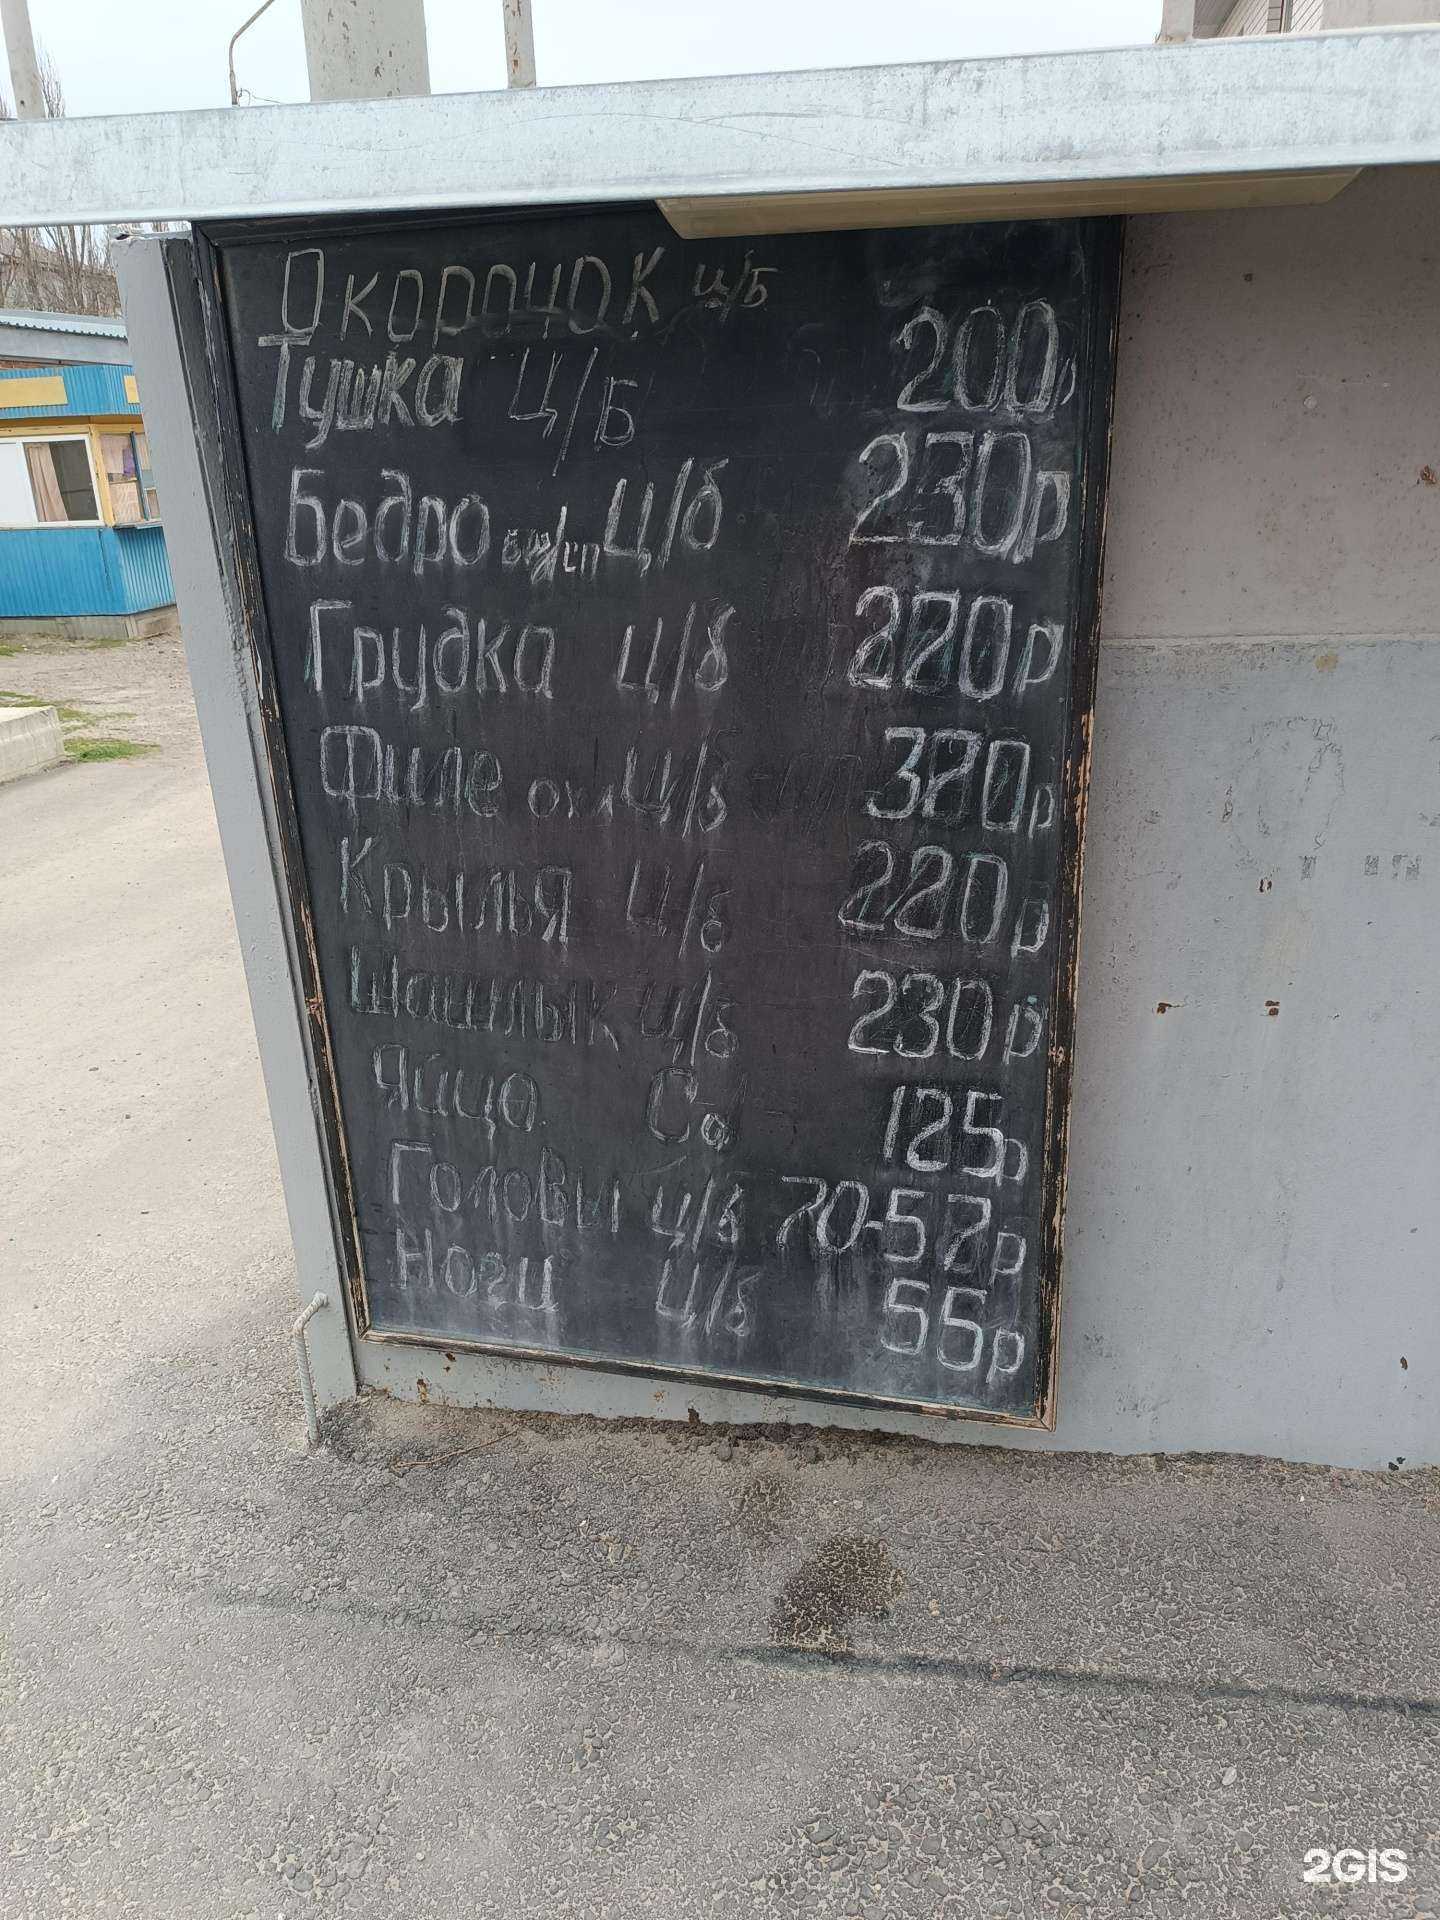 Окорочок ц/Б
Тушка ц/Б 200р
Бедро ц/б 230р
Грудка ц/б 220р
Филе охл ц/б 320р
Крылья ц/б 220р
Шашлык ц/б 230р
Яйцо 125р
Головы ц/б 70-57р
Ноги ц/б 55р
2GIS